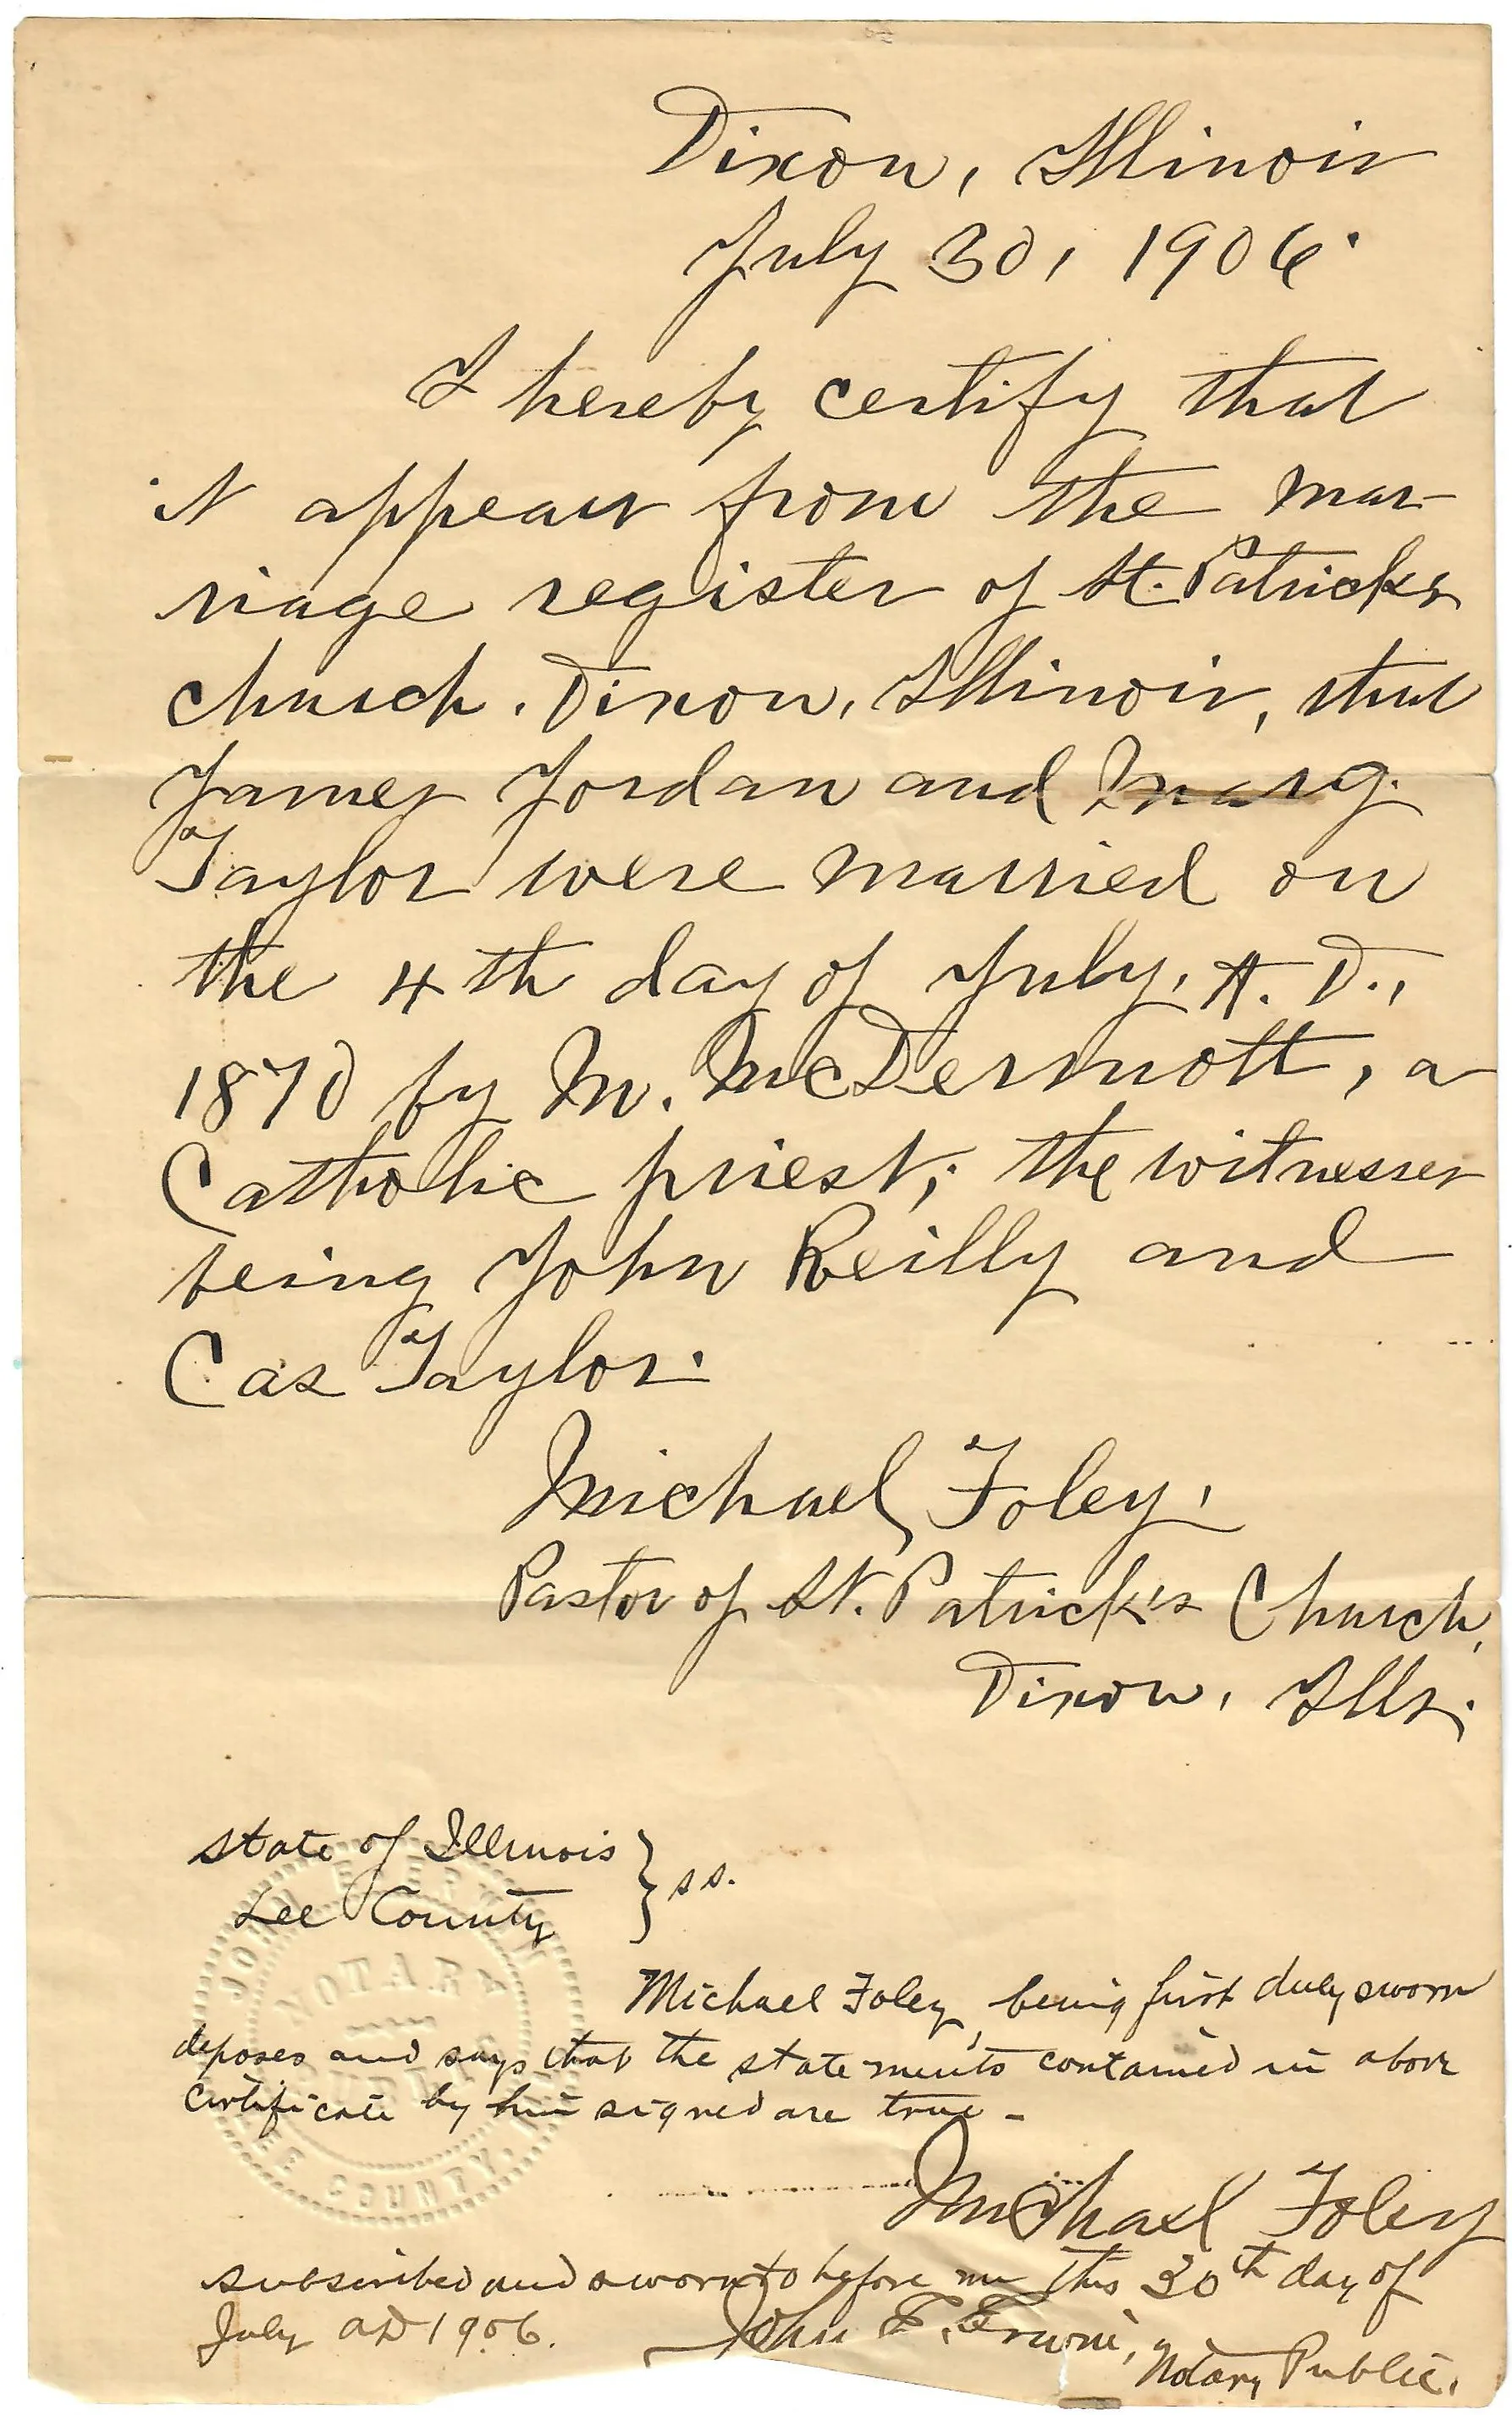 Dixon, Illinois
July 30, 1906.
I hereby certify that
it appears from the mar-
riage register of St. Patricks
church. Dixon, Illinois, that
James Jordan and Marg.
Taylor were married on
the 4th day of July, A. D.,
1870 by M. McDermott, a
Catholic priest; the witnesses
being John Reilly and
Cas Taylor.
Michael Foley,
Pastor of St. Patrick's Church,
Dixon, Ills.
State of Illinois
Lee County } ss.
Michael Foley, being first duly sworn
deposes and says that the statements contained in above
certificate by him signed are true -
Michael Foley
subscribed and sworn to before me this 30th day of
July AD 1906.
John E. Erwin,
Notary Public.
JOHN
NOTARY
LEE COUNTY